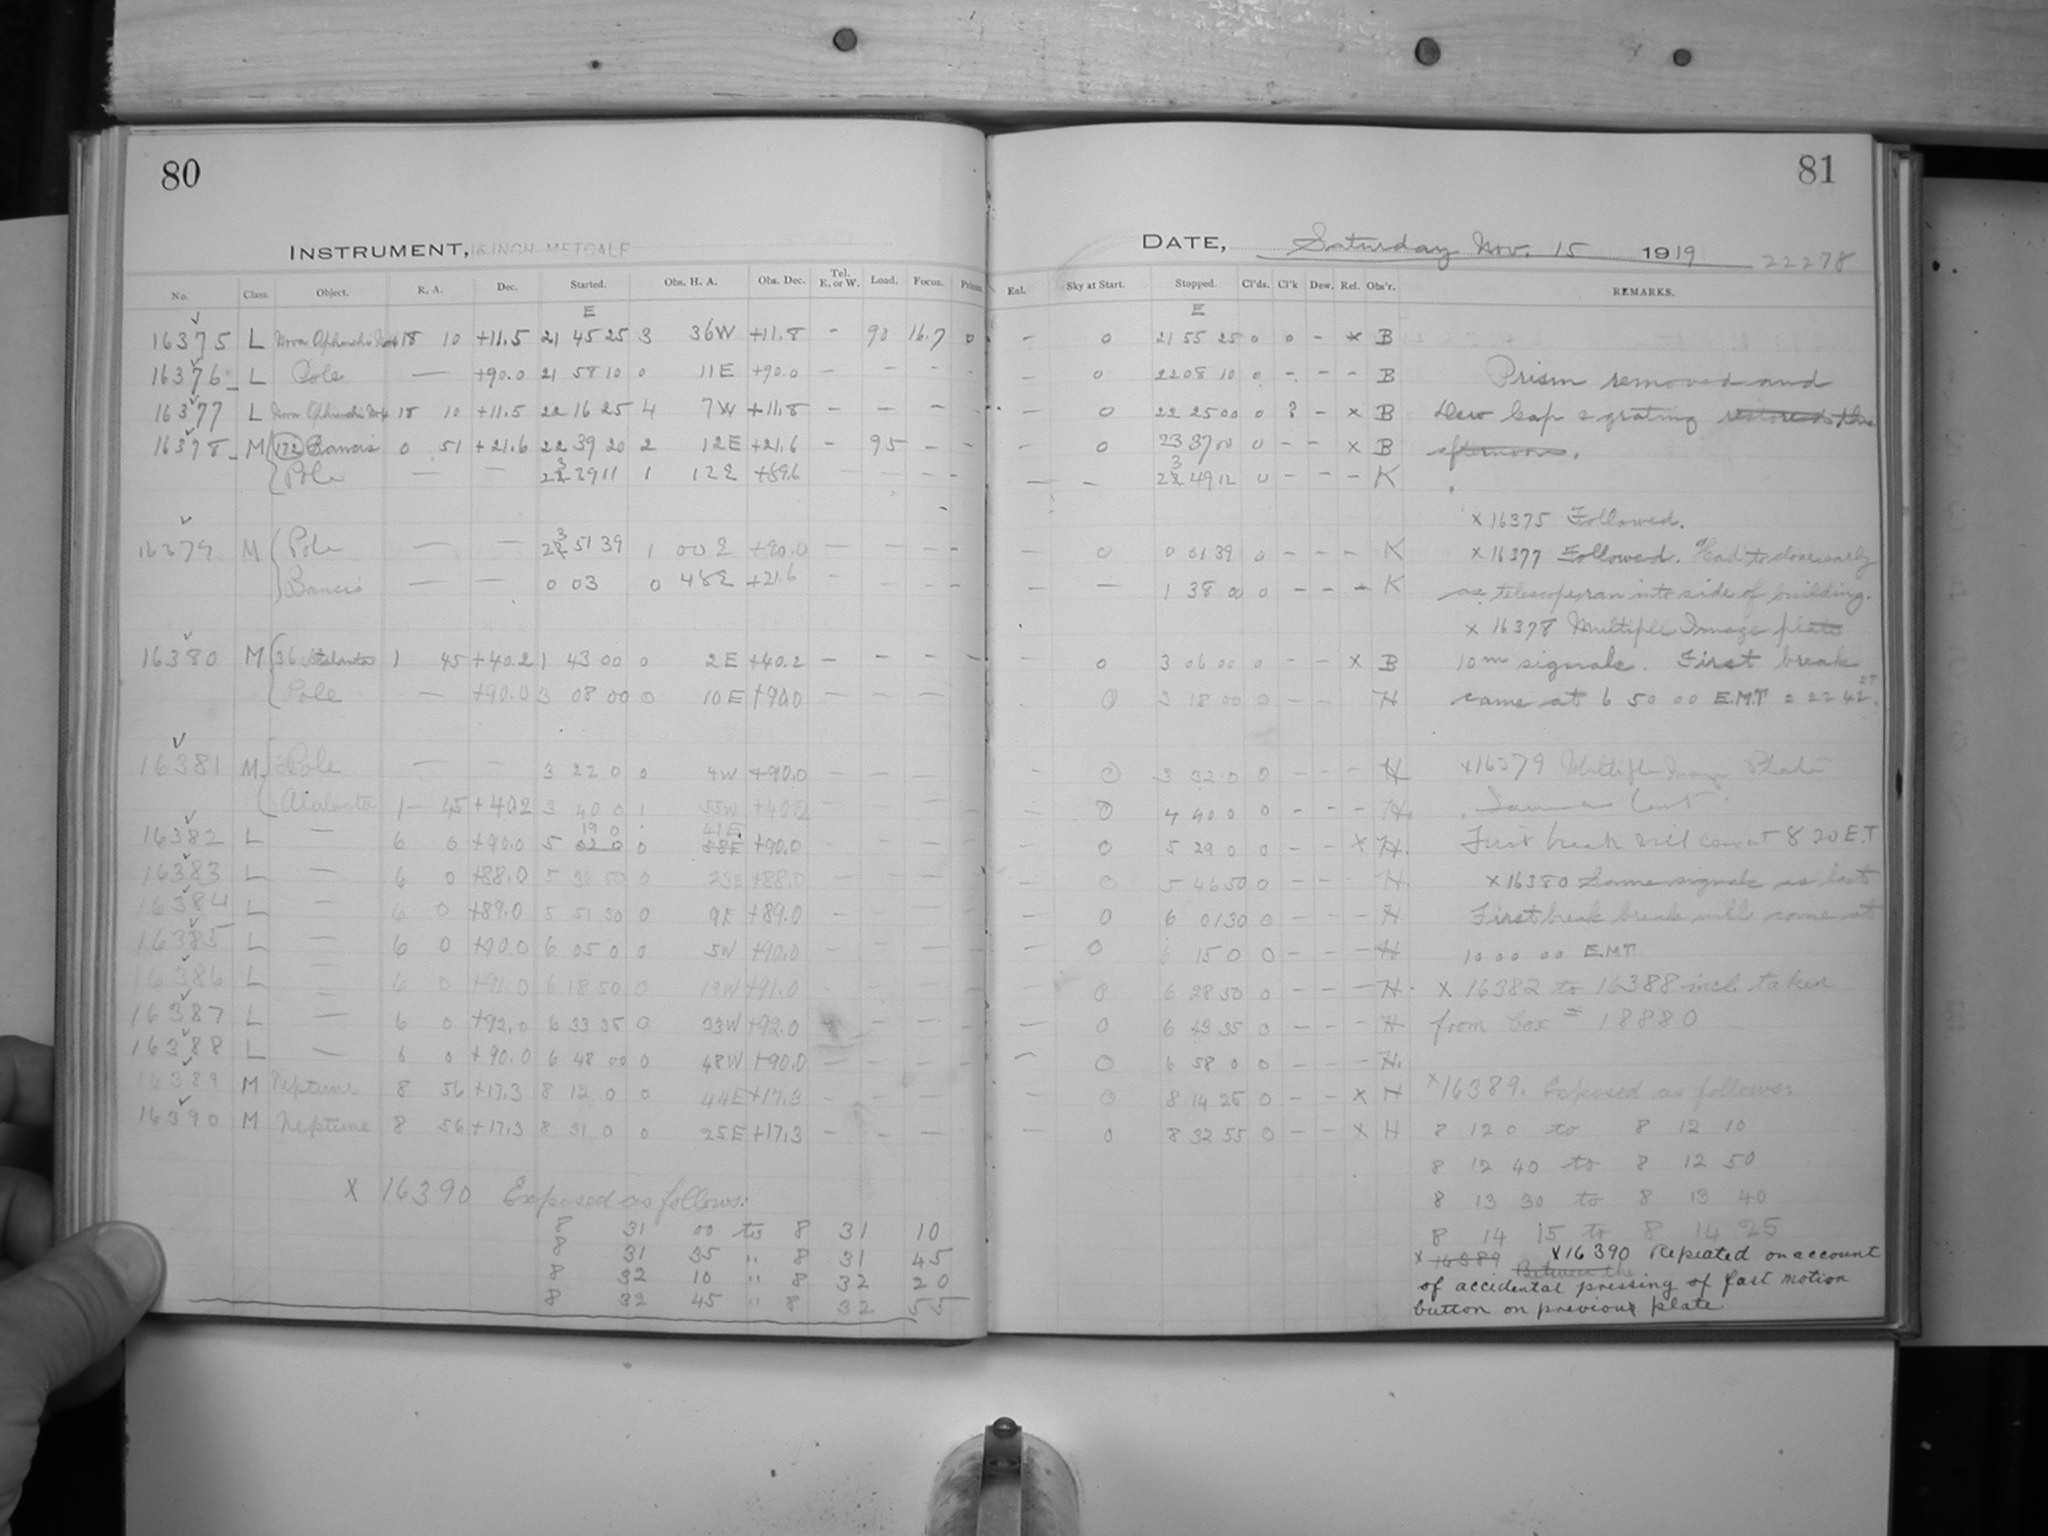 80
INSTRUMENT, 16-INCH METCALF
No. Class. Object. R. A. Dec. Started. Obs. H. A. Obs. Dec. Tel. E. or W. Load. Focus. Prism.
E
16375 L Nova Ophiuchi 18 10 +11.5 21 45 25 3 36W +11.8 - 90 16.7 0
16376 L Pole — +90.0 21 58 10 0 11E +90.0 - - - -
16377 L Nova Ophiuchi 18 10 +11.5 22 16 25 4 7W +11.8 - - - -
16378 M 172 Baucis 0 51 +21.6 22 39 20 2 12E +21.6 - 95 - -
Pole — — 23 39 11 1 12E +89.6 — — — -
16379 M Pole — — 23 51 39 1 00E +90.0 — — — -
Baucis — — 0 03 0 48E +21.6 - - - -
16380 M 36 Atalanta 1 45 +40.2 1 43 00 0 2E +40.2 - - - -
Pole — +90.0 3 08 00 0 10E +90.0 — — —
16381 M Pole — — 3 22 0 0 4W +90.0 — — —
Atalanta 1 45 +40.2 3 40 0 1 55W +40.2 — — —
19 0 41E
16382 L — 6 0 +90.0 5 02 0 0 58E +90.0 - - -
16383 L — 6 0 +88.0 5 36 50 0 23E +88.0 — — —
16384 L — 6 0 +89.0 5 51 30 0 9E +89.0 - - -
16385 L — 6 0 +90.0 6 05 0 0 5W +90.0 - - -
16386 L — 6 0 +91.0 6 18 50 0 19W +91.0 - - -
16387 L — 6 0 +92.0 6 33 35 0 33W +92.0 - - -
16388 L — 6 0 +90.0 6 48 00 0 48W +90.0 — — —
16389 M Neptune 8 56 +17.3 8 12 0 0 44E +17.3 - - -
16390 M Neptune 8 56 +17.3 8 31 0 0 25E +17.3 - - —
X 16390 Exposed as follows:
8 31 00 to 8 31 10
8 31 35 " 8 31 45
8 32 10 " 8 32 20
8 32 45 " 8 32 55
81
DATE, Saturday Nov. 15 1919 22278
Eal. Sky at Start. Stopped. Cl'ds. Cl'k Dew. Ref. Obs'r. REMARKS.
E
- 0 21 55 25 0 0 - x B
- 0 22 08 10 0 - - - B Prism removed and
- 0 22 25 00 0 ? - x B Dew Cap & grating restored this
- 0 23 37 00 0 - - x B afternoon.
— - 23 49 12 0 - - - K
x 16375 Followed.
- 0 0 01 39 0 - - - K x 16377 Followed. Had to close early
- — 1 38 00 0 - - - K as telescope ran into side of building.
x 16378 Multiple Image plate
- 0 3 06 00 0 - - x B 10m signals. First break
0 3 18 00 0 - - H came at 6 50 00 E.M.T = 22 42 27
- 0 3 32 0 0 - - - H x 16379 Multiple Image Plate
- 0 4 40 0 0 - - - H. Same as last
- 0 5 29 0 0 - - x H. First break will come at 8 20 E.T.
- 0 5 46 50 0 - - H. x 16380 Same signals as last
- 0 6 01 30 0 - - - H First break break will come at
- 0 6 15 0 0 - - - H 10 00 00 E.M.T.
0 6 28 50 0 - - - H. x 16382 to 16388 incl. taken
- 0 6 43 35 0 - - - H from box # 18880
- 0 6 58 0 0 - - - H.
- 0 8 14 25 0 - - x H x 16389. Exposed as follows:
- 0 8 32 55 0 - - x H 8 12 0 to 8 12 10
8 12 40 to 8 12 50
8 13 30 to 8 13 40
8 14 15 to 8 14 25
x 16389 Between the x 16390 Repeated on account
of accidental pressing of fast motion
button on previous plate